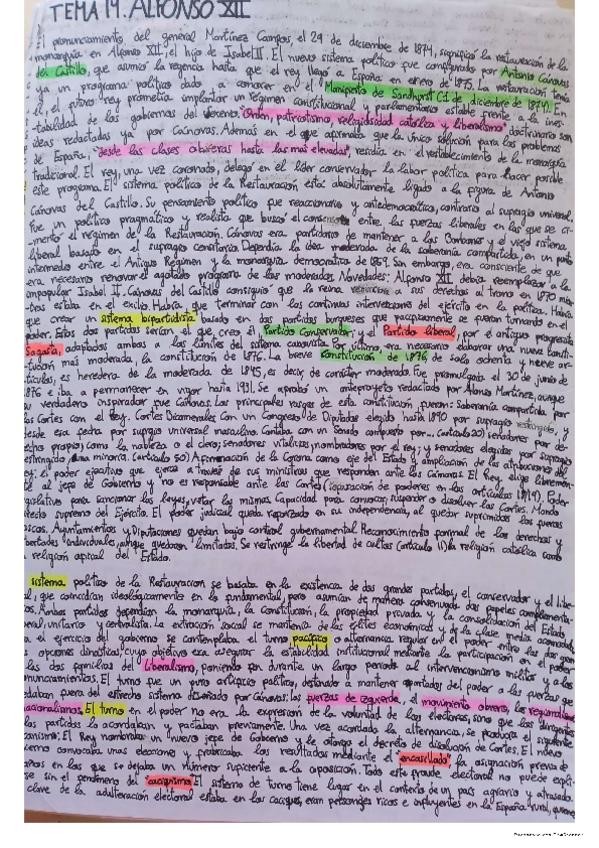 TEMA 14. ALFONSO XII
El pronunciamiento del general Martínez Campos, el 29 de diciembre de 1874, significó la restauración de la
monarquía en Alfonso XII, el hijo de Isabel II. El nuevo sistema político fue configurado por Antonio Cánovas
del Castillo, que asumió la regencia hasta que el rey llegó a España en enero de 1875. La restauración tenía
ya un programa político dado a conocer en el Manifiesto de Sandhurst (1 de diciembre de 1874). En
él, el futuro rey prometía implantar un régimen constitucional y parlamentario estable frente a la ines-
tabilidad de los gobiernos del sexenio. Orden, patriotismo, religiosidad católica y liberalismo" doctrinario son
ideas redactadas ya por Cánovas. Además en el que afirmaba que la única solución para los problemas
de España, "desde las clases obreras hasta las más elevadas", residía en el restablecimiento de la monarquía
tradicional. El rey, una vez coronado, delegó en el líder conservador la labor política para hacer posible
este programa. El sistema político de la Restauración está absolutamente ligado a la figura de Antonio
Cánovas del Castillo. Su pensamiento político fue reaccionario y antidemocrático, contrario al sufragio universal.
Fue un político pragmático y realista que buscó el consenso entre las fuerzas liberales en las que se ci-
mentó el régimen de la Restauración. Cánovas era partidario de mantener a los Borbones y el viejo sistema
liberal basado en el sufragio censitario. Defendía la idea moderada de la soberanía compartida, en un punto
intermedio entre el Antiguo Régimen y la monarquía democrática de 1869. Sin embargo, era consciente de que
era necesario renovar el agotado programa de los moderados. Novedades: Alfonso XII debía reemplazar a la
impopular Isabel II. Cánovas del Castillo consiguió que la reina a sus derechos al trono en 1870 mien-
tras estaba en el exilio. Había que terminar con las continuas intervenciones del ejército en la política. Había
que crear un sistema bipartidista basado en dos partidos burgueses que pacíficamente se fueran turnando en el
poder. Estos dos partidos serían el que creó él, Partido Conservador; y el Partido liberal, por el antiguo progresista
Sagasta, adaptados ambos a los límites del sistema canovista. Por último, era necesario elaborar una nueva consti-
tución más moderada, la constitución de 1876. La breve constitución de 1876, de solo ochenta y nueve ar-
tículos, es heredera de la moderada de 1845, es decir, de carácter moderado. Fue promulgada el 30 de junio de
1876 e iba a permanecer en vigor hasta 1931. Se aprobó un anteproyecto redactado por Alonso Martínez, aunque
su verdadero inspirador fue Cánovas. Los principales rasgos de esta constitución fueron: Soberanía compartida por
las Cortes con el Rey. Cortes Bicamerales con un Congreso de Diputados elegido hasta 1890 por sufragio restringido, y
desde esa fecha por sufragio universal masculino. Contaba con un Senado compuesto por... (artículo 20) senadores por de-
recho propio, como la nobleza o el clero; senadores vitalicios, nombrados por el rey; y senadores elegidos por sufragio
restringido, una minoría. (artículo 50) Afirmación de la Corona como eje del Estado y ampliación de las atribuciones del
rey: el poder ejecutivo que ejerce a través de sus ministros que responden ante las Cámaras. El Rey elige libremen-
te al jefe de Gobierno y no es responsable ante las Cortes (separación de poderes en los artículos 18/19). Poder
legislativo para sancionar las leyes, vetar las mismas. Capacidad para convocar, suspender o disolver las Cortes. Mando
supremo del Ejército. El poder judicial queda reforzado en su independencia, al quedar suprimidos los fueros
Ayuntamientos y Diputaciones quedan bajo control gubernamental. Reconocimiento formal de los derechos y
libertades individuales, aunque quedaron limitados. Se restringe la libertad de cultos (artículo 11) la religión católica como
religión oficial del Estado.
sistema político de la Restauración se basaba en la existencia de dos grandes partidos, el conservador y el libe-
ral, que coincidían ideológicamente en lo fundamental, pero asumían de manera convenida dos papeles complementa-
rios. Ambos partidos defendían la monarquía, la Constitución, la propiedad privada y la consolidación del Estado
unitario y centralista. La extracción social se mantenía de las élites económicas y de la clase media acomodada,
el ejercicio del gobierno se contemplaba el turno pacífico o alternancia regular en el poder entre las dos gran-
opciones dinásticas, cuyo objetivo era asegurar la estabilidad institucional mediante la participación en el poder
las dos familias del liberalismo, poniendo fin durante un largo periodo al intervencionismo militar y a los
pronunciamientos. El turno fue un puro artificio político, destinado a mantener apartados del poder a las fuerzas que
quedaban fuera del estrecho sistema diseñado por Cánovas: las fuerzas de izquierda, el movimiento obrero, los regionalismos
nacionalismos. El turno en el poder no era la expresión de la voluntad de los electores, sino que los dirigentes
los partidos lo acordaban y pactaban previamente. Una vez acordada la alternancia, se producía el siguiente
mecanismo: El Rey nombraba un nuevo jefe de Gobierno y le otorga el decreto de disolución de Cortes. El nuevo
gobierno convocaba unas elecciones y fabricaba los resultados mediante el "encasillado", la asignación previa de
escaños en los que se dejaba un número suficiente a la oposición. Todo este fraude electoral no puede expli-
carse sin el fenómeno del "caciquismo". El sistema de turno tiene lugar en el contexto de un país agrario y atrasado.
clave de la adulteración electoral estaba en los caciques, eran personajes ricos e influyentes en la España rural, quienes